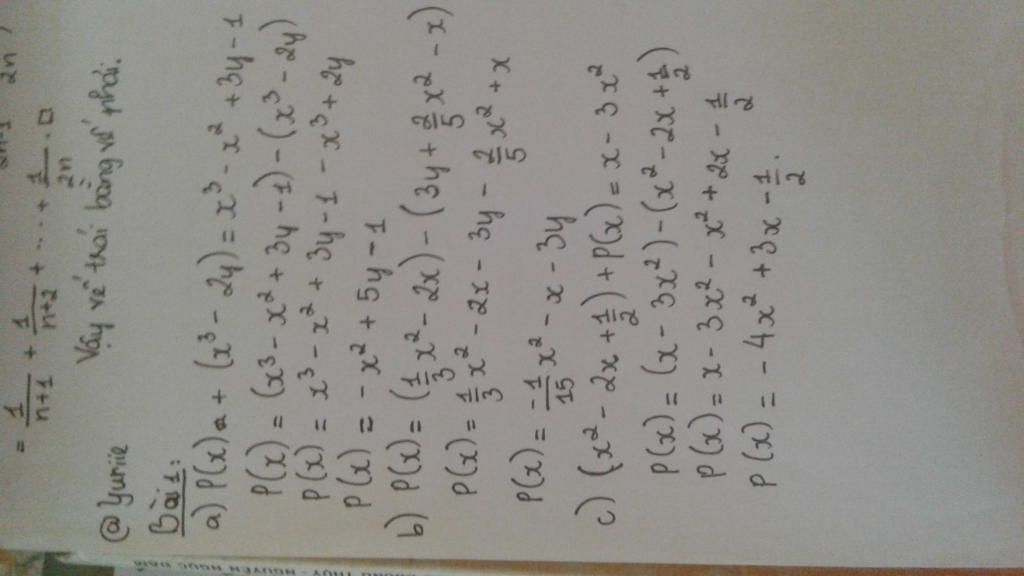 = 1/(n+1) + 1/(n+2) + ... + 1/2n . □
Vậy vế trái bằng vế phải.
@Yuriie
Bài 1:
a) P(x) + (x³ - 2y) = x³ - x² + 3y - 1
P(x) = (x³ - x² + 3y - 1) - (x³ - 2y)
P(x) = x³ - x² + 3y - 1 - x³ + 2y
P(x) = - x² + 5y - 1
b) P(x) = (1/3 x² - 2x) - (3y + 2/5 x² - x)
P(x) = 1/3 x² - 2x - 3y - 2/5 x² + x
P(x) = -1/15 x² - x - 3y
c) (x² - 2x + 1/2) + P(x) = x - 3x²
P(x) = (x - 3x²) - (x² - 2x + 1/2)
P(x) = x - 3x² - x² + 2x - 1/2
P(x) = - 4x² + 3x - 1/2.
NGUYỄN NGỌC ĐẠM